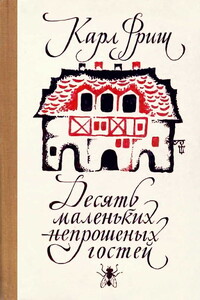 Карл Фриш
Десять
маленьких
-непрошеных
гостей